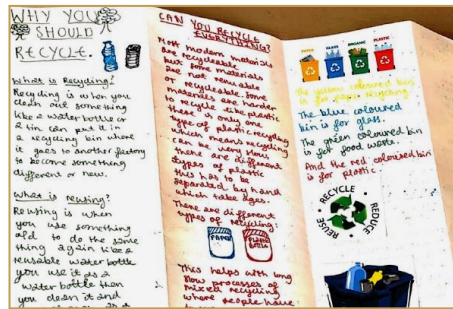 WHY YOU
SHOULD
RECYCLE.
What is Recycling?
Recycling is when you
clean out something
like a water bottle or
a tin can put it in
a recycling bin where
it goes to another factory
to become something
different or new.
What is reusing?
Reusing is when
you use something
old to do the same
thing again like a
reusable water bottle
you use it as a
water bottle then
you clean it and
CAN YOU RECYCLE
EVERYTHING?
Most modern materials
are recycleable
but some materials
are not reusable
or recycleable. Some
materials are harder
to recycle like plastic
there is only one
type of plastic recycling
which means recycling
can be very slow
there are different
types of plastic
this has to be
separated by hand
which takes ages.
There are different
types of recycling:
PAPER
PLASTIC
BOTTLE
This helps with long
slow processes of
mixed recycling
where people have
PAPER GLASS ORGANIC PLASTIC
The yellow coloured bin
is for paper recycling
The blue coloured
bin is for glass.
The green coloured bin
is for food waste.
And the red coloured bin
is for plastic.
RECYCLE
REDUCE
REUSE